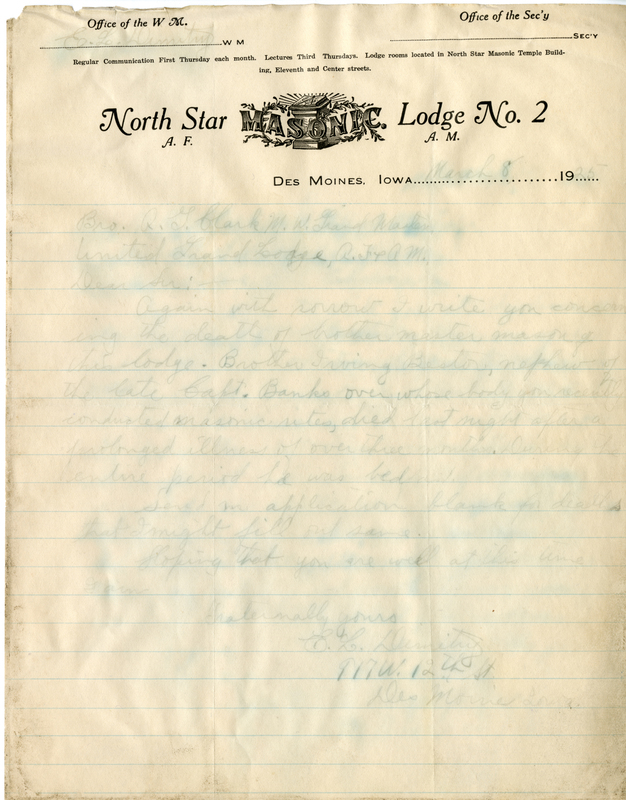 Office of the W M.
Office of the Sec'y
W M
SEC'Y
Regular Communication First Thursday each month. Lectures Third Thursdays. Lodge rooms located in North Star Masonic Temple Build-
ing, Eleventh and Center streets.
North Star MASONIC. Lodge No. 2
A. F. A. M.
DES MOINES, IOWA March 8 19
Bro. Clark M. W. Grand Master
United Grand Lodge, A. F. & A. M.
Dear Sir:
Again with sorrow I write you concern
ing the death of brother master mason
lodge. Brother Irving nephew of
the late Capt. Banks over whose body you recently
conducted masonic rites, died last night after a
prolonged illness of over three months. During
entire period he was
Send me application blank for deaths
that I might fill out same.
Hoping that you are well at this time
Fraternally yours
E.
W. 12th St.
Des Moines